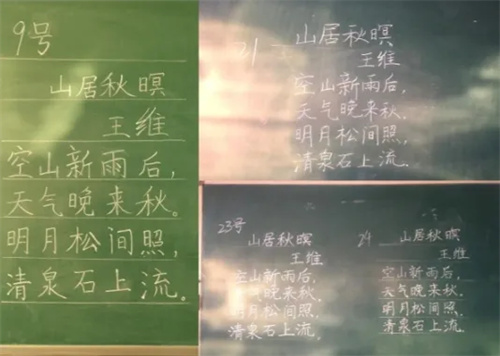 9号
山居秋暝
王维
空山新雨后,
天气晚来秋。
明月松间照,
清泉石上流。
21
山居秋暝
王维
空山新雨后,
天气晚来秋.
明月松间照,
清泉石上流.
23号
山居秋暝
王维
空山新雨后,
天气晚来秋.
明月松间照,
清泉石上流.
24
山居秋暝
王维
空山新雨后,
天气晚来秋.
明月松间照,
清泉石上流.